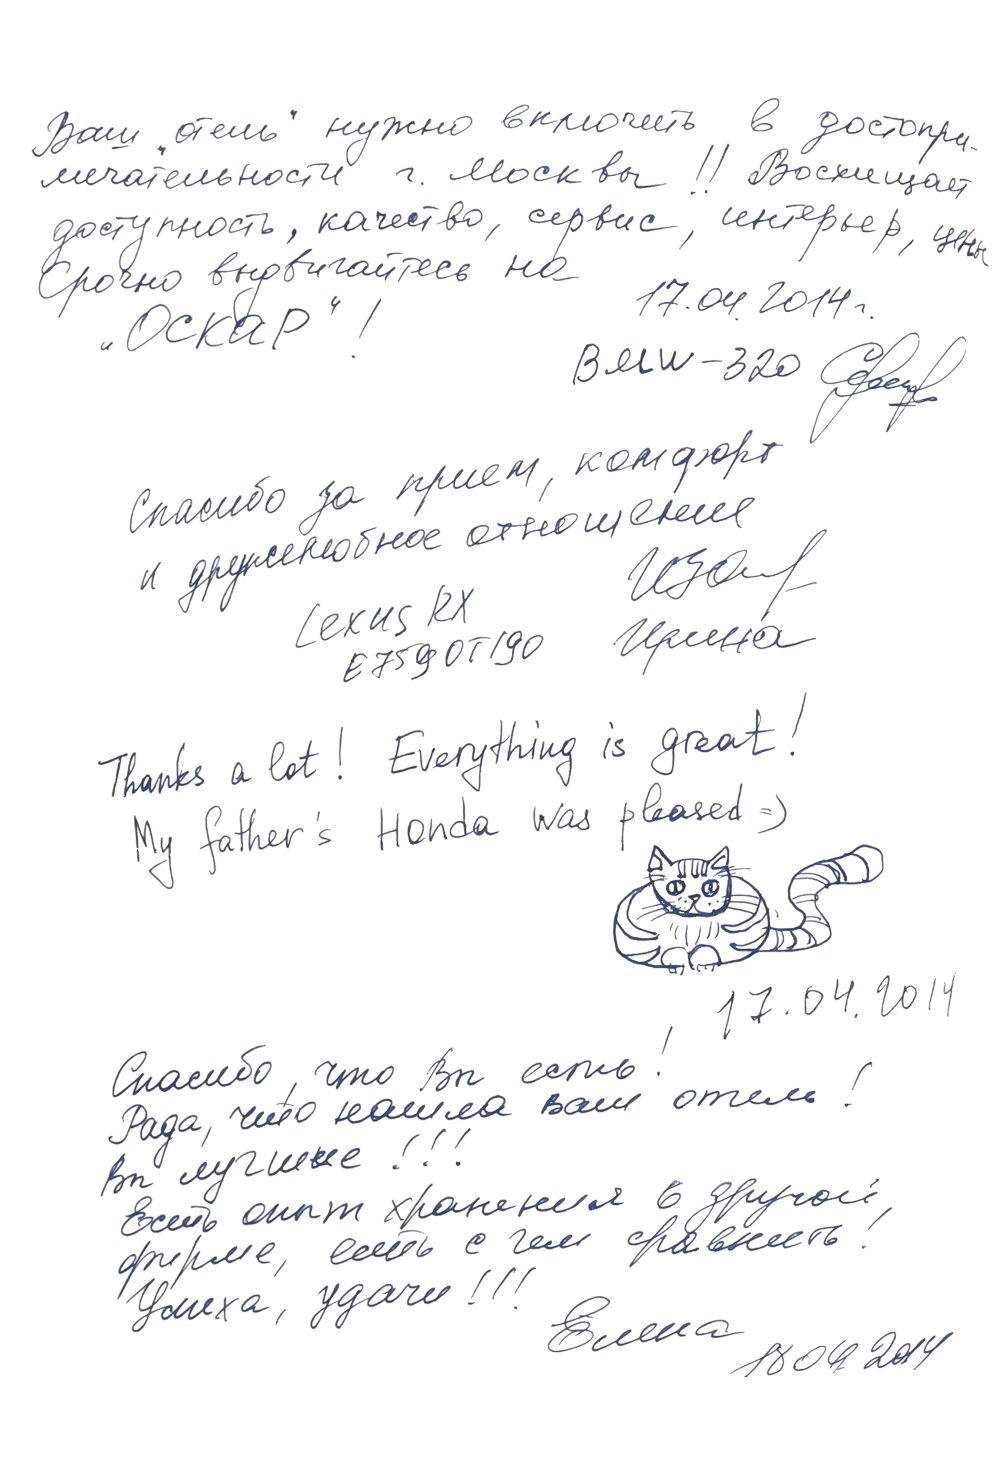 Ваш „отель" нужно включить в достопри-
мечательности г. Москвы!! Восхищает
доступность, качество, сервис, интерьер, цены
Срочно выдвигайтесь на
„Оскар"!
17.04.2014г.
BMW-320
Спасибо за прием, комфорт
и дружелюбное отношение
Lexus RX
Е759ОТ190
Ирина
Thanks a lot! Everything is great!
My father's Honda was pleased =)
17.04.2014
Спасибо, что Вы есть!
Рада, что нашла ваш отель!
Вы лучшие!!!
Есть опыт хранения в другой
фирме, есть с чем сравнить!
Успеха, удачи!!!
Елена
18 04 2014